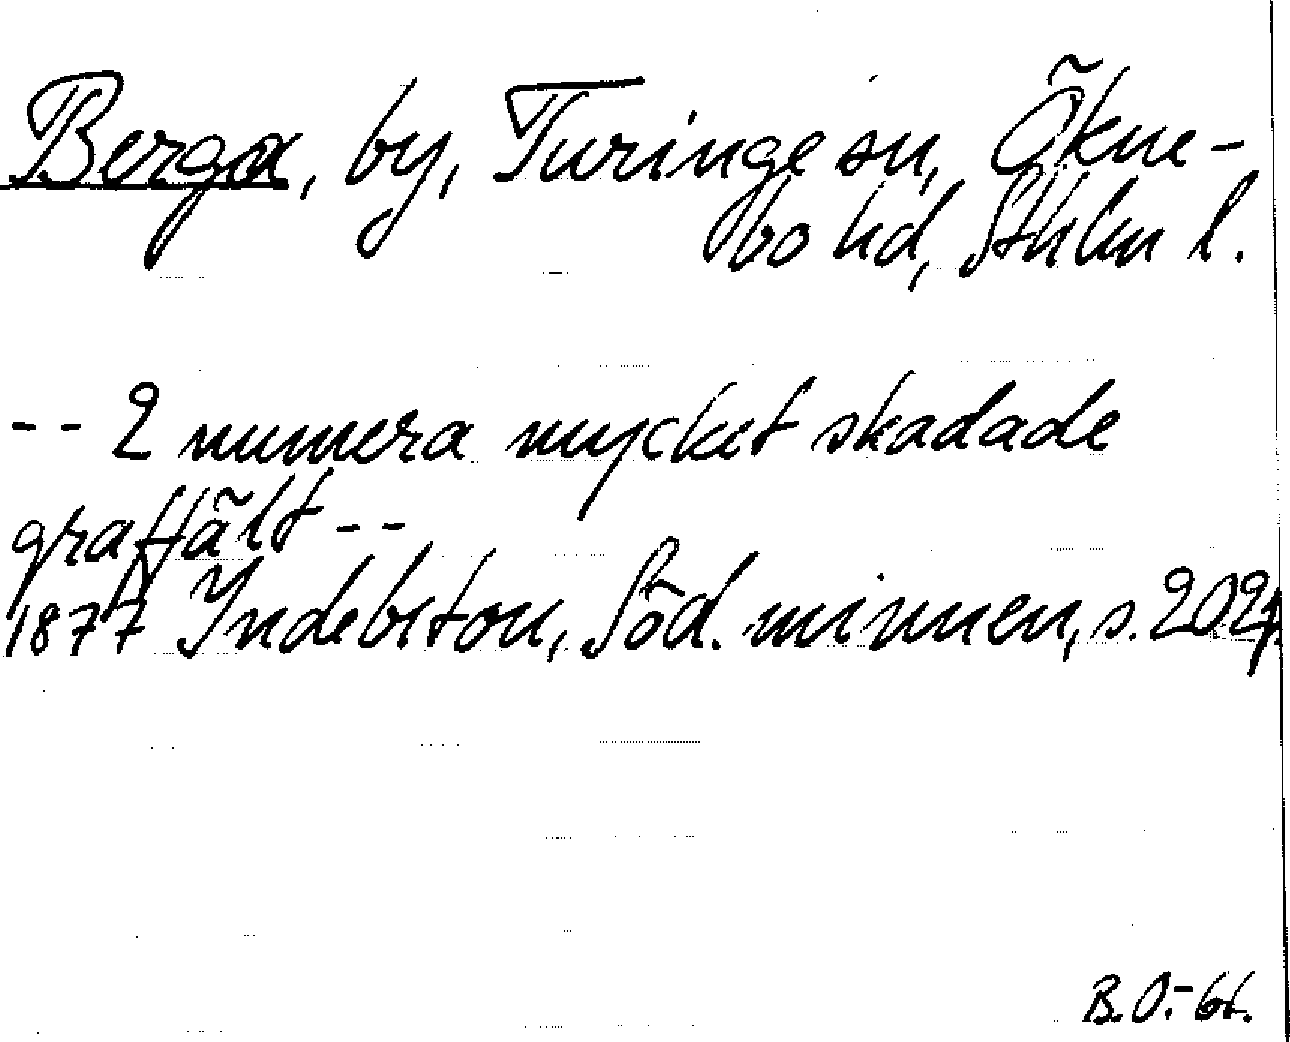 Berga, by, Turinge sn, Õkne-
bo hd, Sthlm l.
-- 2 numera mycket skadade
graffält --
1877 Indebetou, Söd. minnen, s. 202.
B.O.-66.